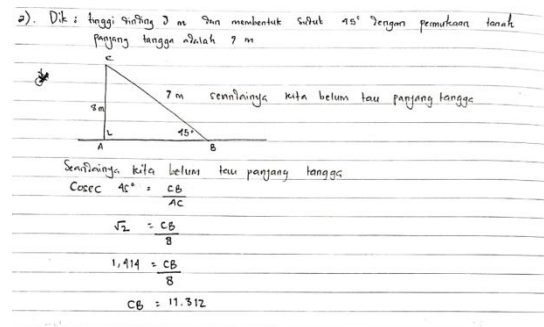 2). Dik : tinggi dinding 8 m dan membentuk sudut 45° dengan permukaan tanah
panjang tangga adalah 7 m
C
7 m seandainya kita belum tau panjang tangga
8 m
45°
A
B
Seandainya kita belum tau panjang tangga
Cosec 45° = CB
AC
√2 = CB
8
1,414 = CB
8
CB = 11.312